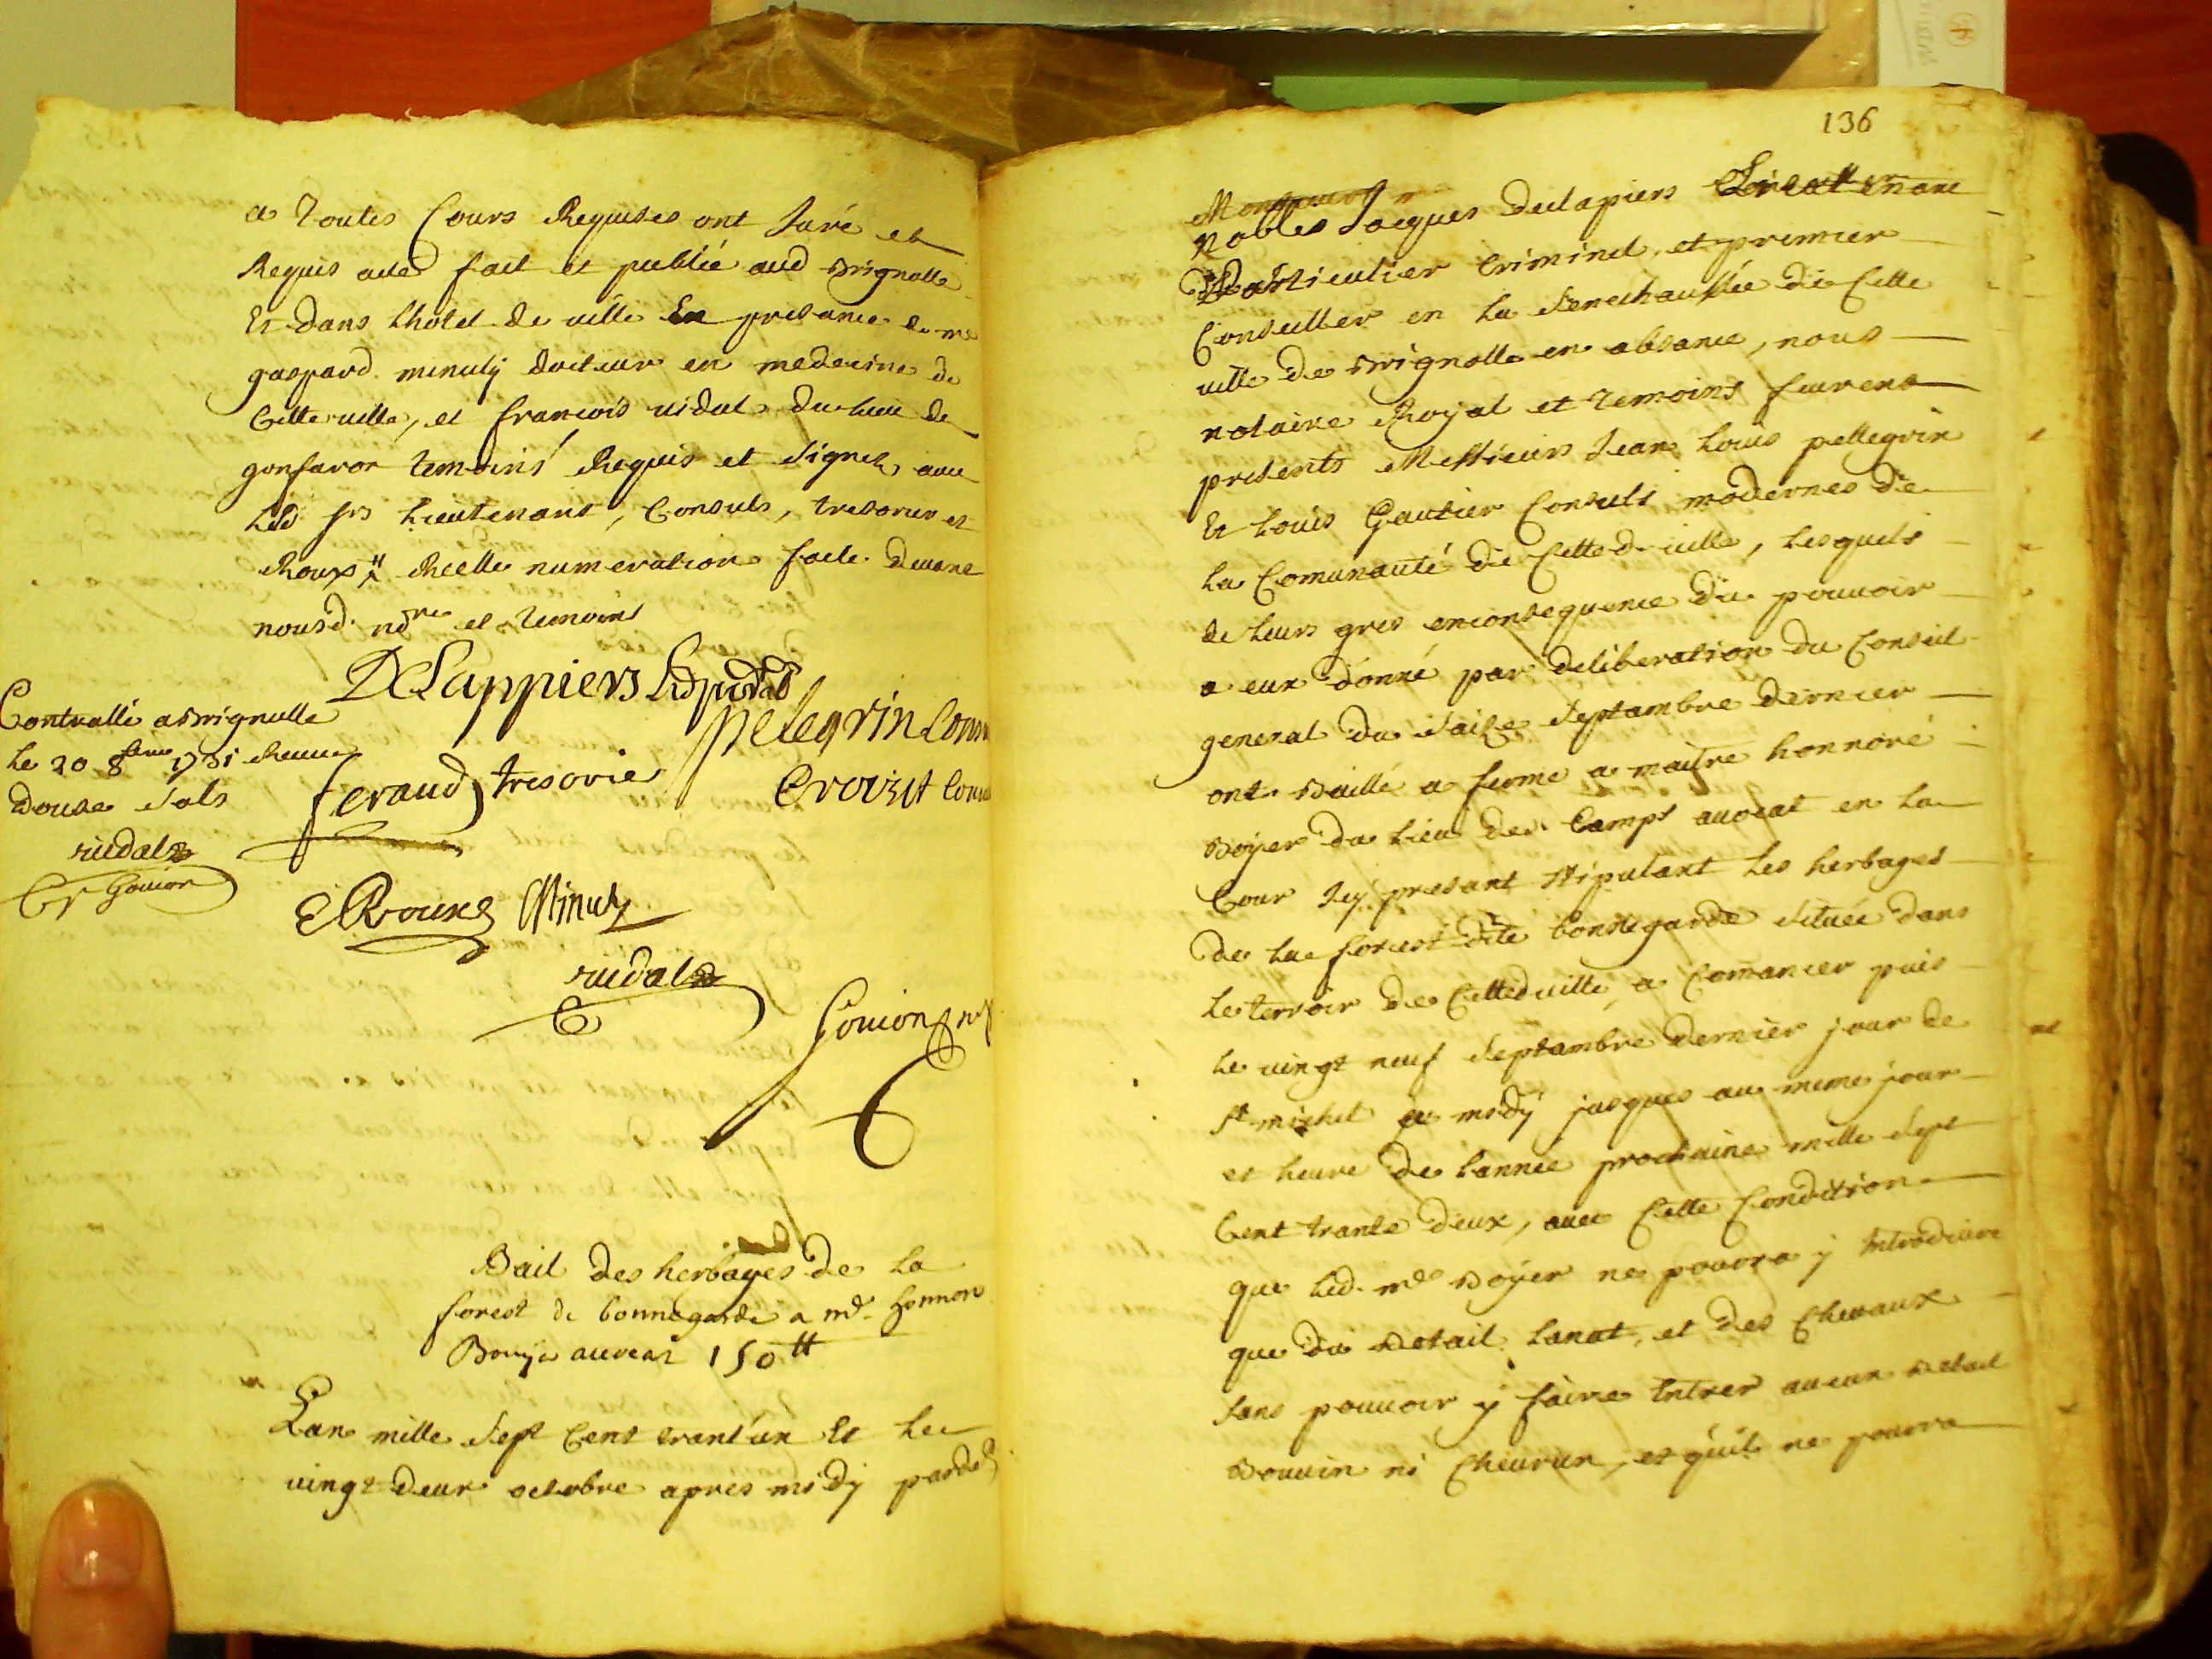 a toutes Cours Requises ont Juré et
Requis acte fait et publié aud Brignolle
Et dans Lhotel de ville En presance de me
gaspard minuty docteur en medecine de
Cette ville, et francois vidal du lieu de
gonfaron temoins Requis et signés avec
Lesd srs Lieutenant, Consuls, tresorier et
Roux Reelle numeration faite devant
nousd. nore et temoins
DeLappiers
Pelegrin Cons
Contrallé a Brignolle
le 20 8bre 1731 Receu
douze sols
feraud tresorier
Crozet
vidal
Goujon
ERoux Minuty
vidal
Goujon
Bail des herbages de la
forest de bonnegarde a me honnoré
Boyer avocat 150 tt
Lan mille Sept Cens trant'un Et Le
vingt deux octobre apres midy pard
136
nobles Jacques delapiers Lieutenant
Particulier Criminel, et premier
Conseiller en la Senechaussée de Cette
ville de Brignolle en absance, nous
notaire Royal et temoins furent
presents Messieurs Jean Louis pellegrin
Et Louis Gautier Consuls modernes de
La Comunauté de Cetted ville, Lesquels
de Leurs gres enconsequence du pouvoir
a eux donné par deliberation du Conseil
general du saize septambre dernier
ont Baillé a ferme a maitre honnoré
Boyer du Lieu de Camps avocat en la
Cour Icy presant stipulant Les herbages
de La forest dite bonnegarde située dans
Le terroir de Cetted ville, a Comancer puis
Le vingt neuf septambre dernier jour de
St michel a midy jusques au meme jour
et heure de Lannée prochaine mille sept
Cent trante deux, avec Cette Condition
que Led. me Boyer ne pourra y introduire
que du Betail Lanut, et des Chevaux
sans pouvoir y faire Entrer aucun Betail
Bouvin ni Chevrun, et qu'il ne pourra